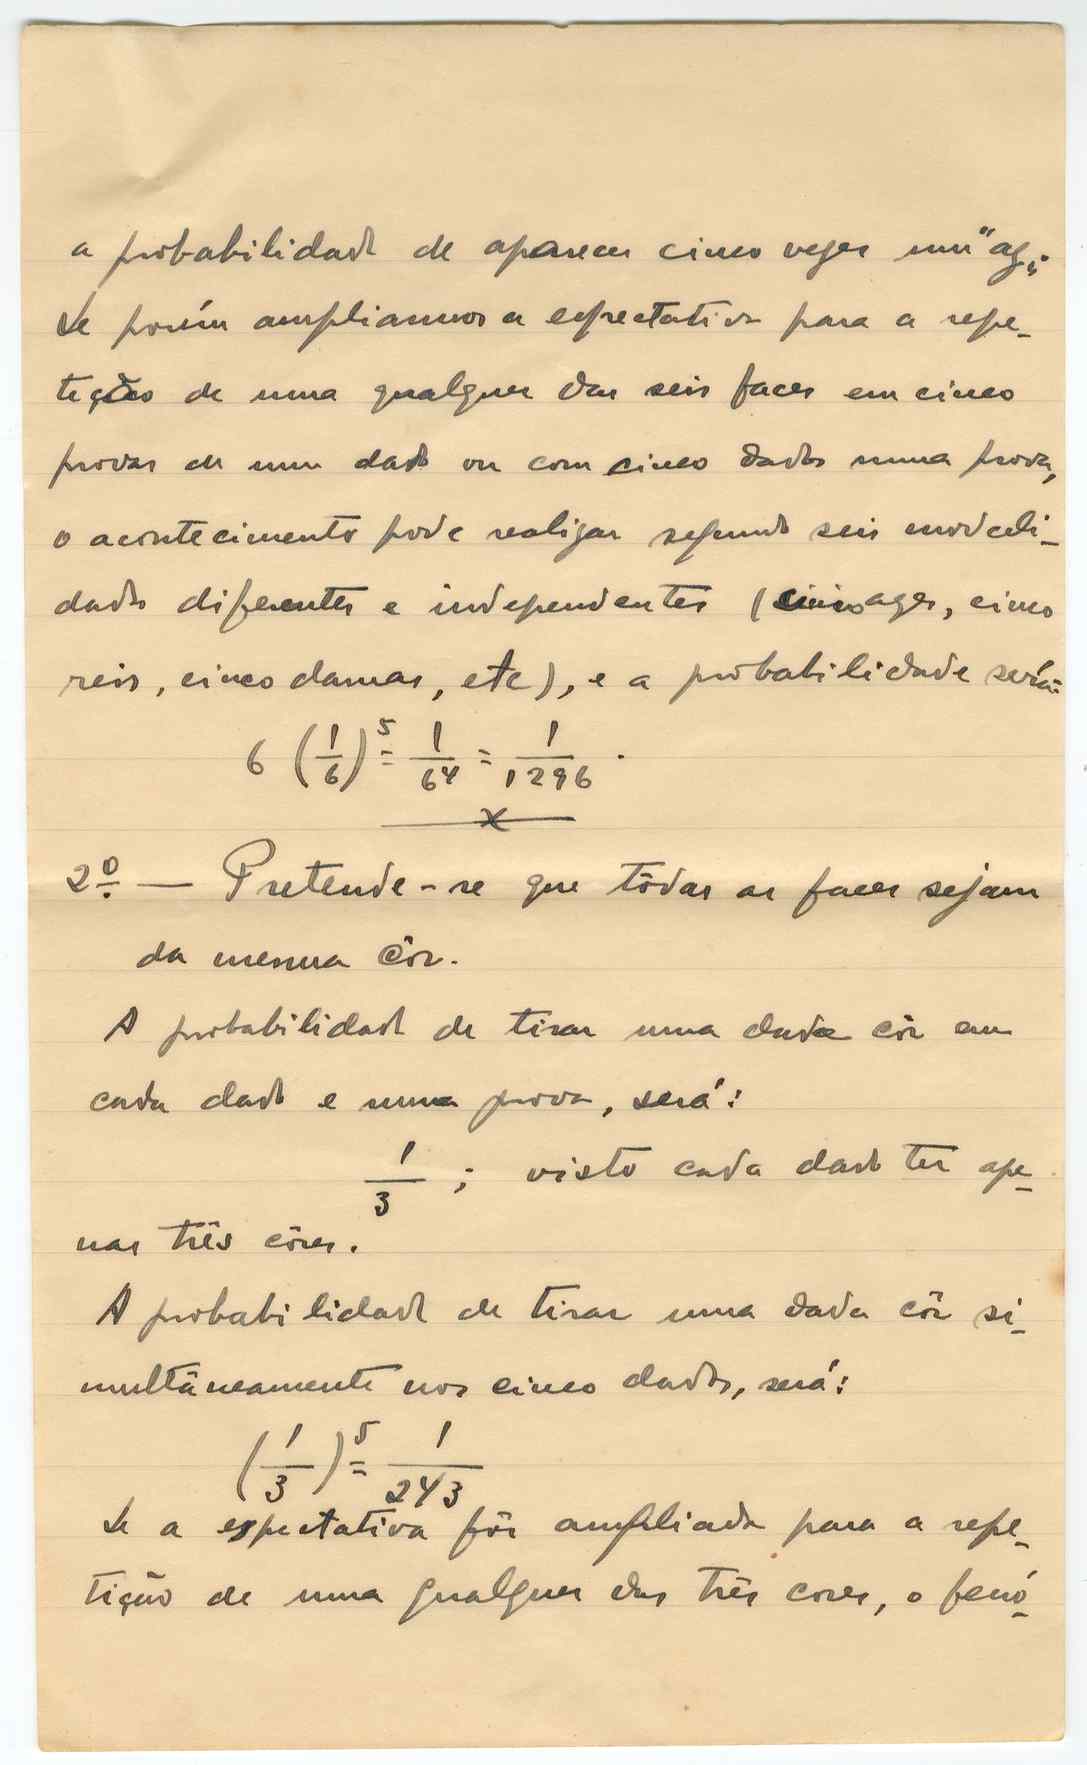 a probabilidade de aparecer cinco vezes um "az".
Se porém ampliarmos a espectativa para a repe-
tição de uma qualquer das seis faces em cinco
provas de um dado ou com cinco dados numa prova,
o acontecimento pode realizar segundo seis modali-
dades diferentes e independentes (cinco azes, cinco
reis, cinco damas, etc), e a probabilidade será:
6 (1/6)^5 = 1/6^4 = 1/1296.
x
2º — Pretende-se que tôdas as faces sejam
da mesma côr.
A probabilidade de tirar uma dada côr em
cada dado e numa prova, será:
1/3 ; visto cada dado ter ape-
nas três côres.
A probabilidade de tirar uma dada côr si-
multâneamente nos cinco dados, será:
(1/3)^5 = 1/243
Se a espectativa fôr ampliada para a repe-
tição de uma qualquer das três cores, o fenó-